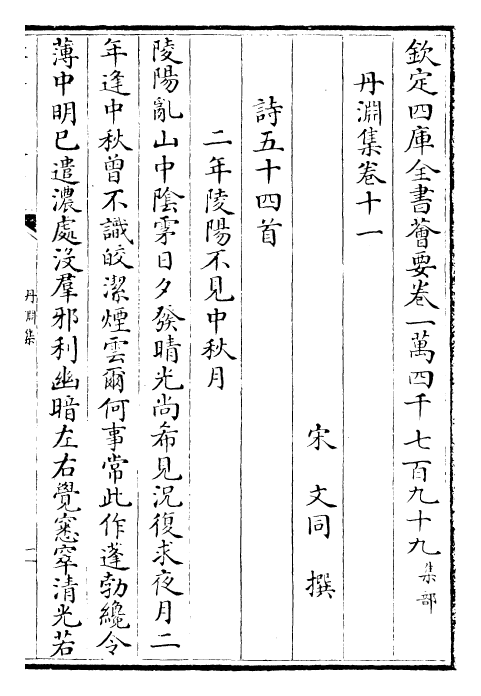 欽定四庫全書薈要卷一萬四千七百九十九集部
丹淵集卷十一
宋文同撰
詩五十四首
二年陵陽不見中秋月
陵陽亂山中陰霏日夕發晴光尚希見況復求夜月二
年逢中秋曾不識皎潔煙雲爾何事常此作蓬勃纔令
薄中明已遣濃處没羣邪利幽暗左右覺窓穿清光若
丹淵集
一